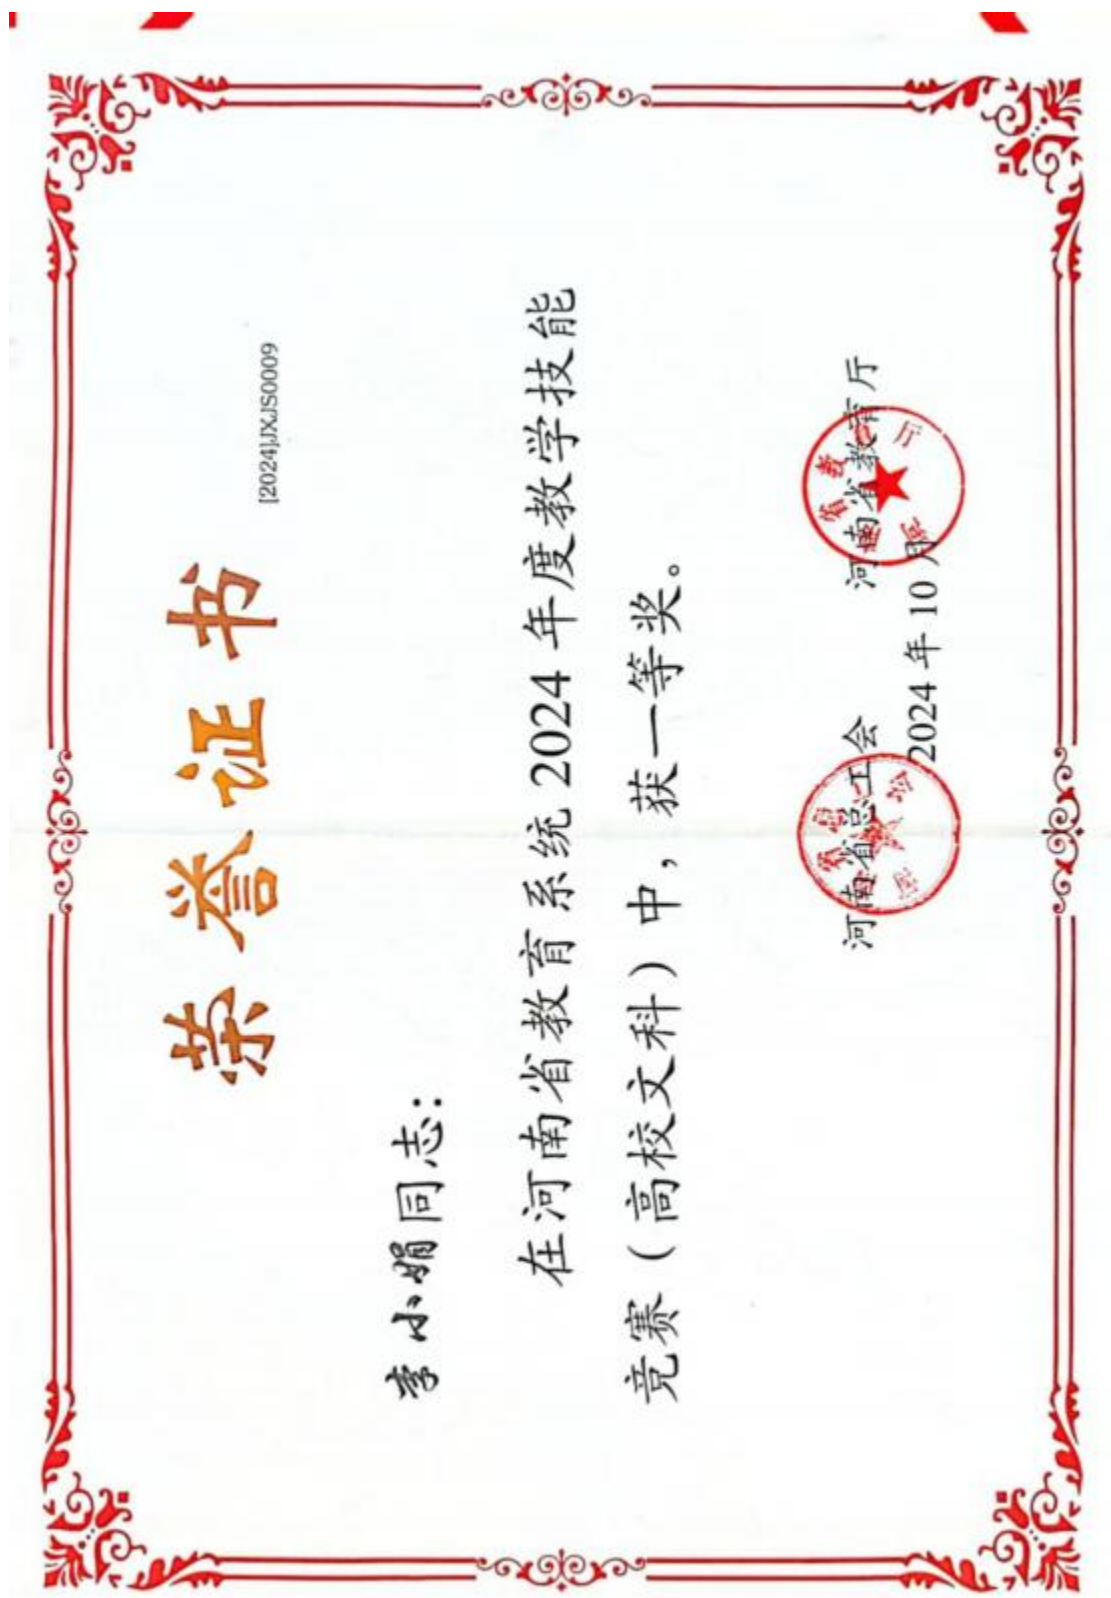 荣誉证书
[2024]JXJS0009
李小娟同志：
在河南省教育系统 2024 年度教学技能
竞赛（高校文科）中，获一等奖。
河南省总工会 河南省教育厅
2024 年 10 月